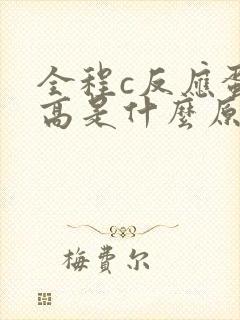 全程c反應蛋
高是什麼原
梅費尔